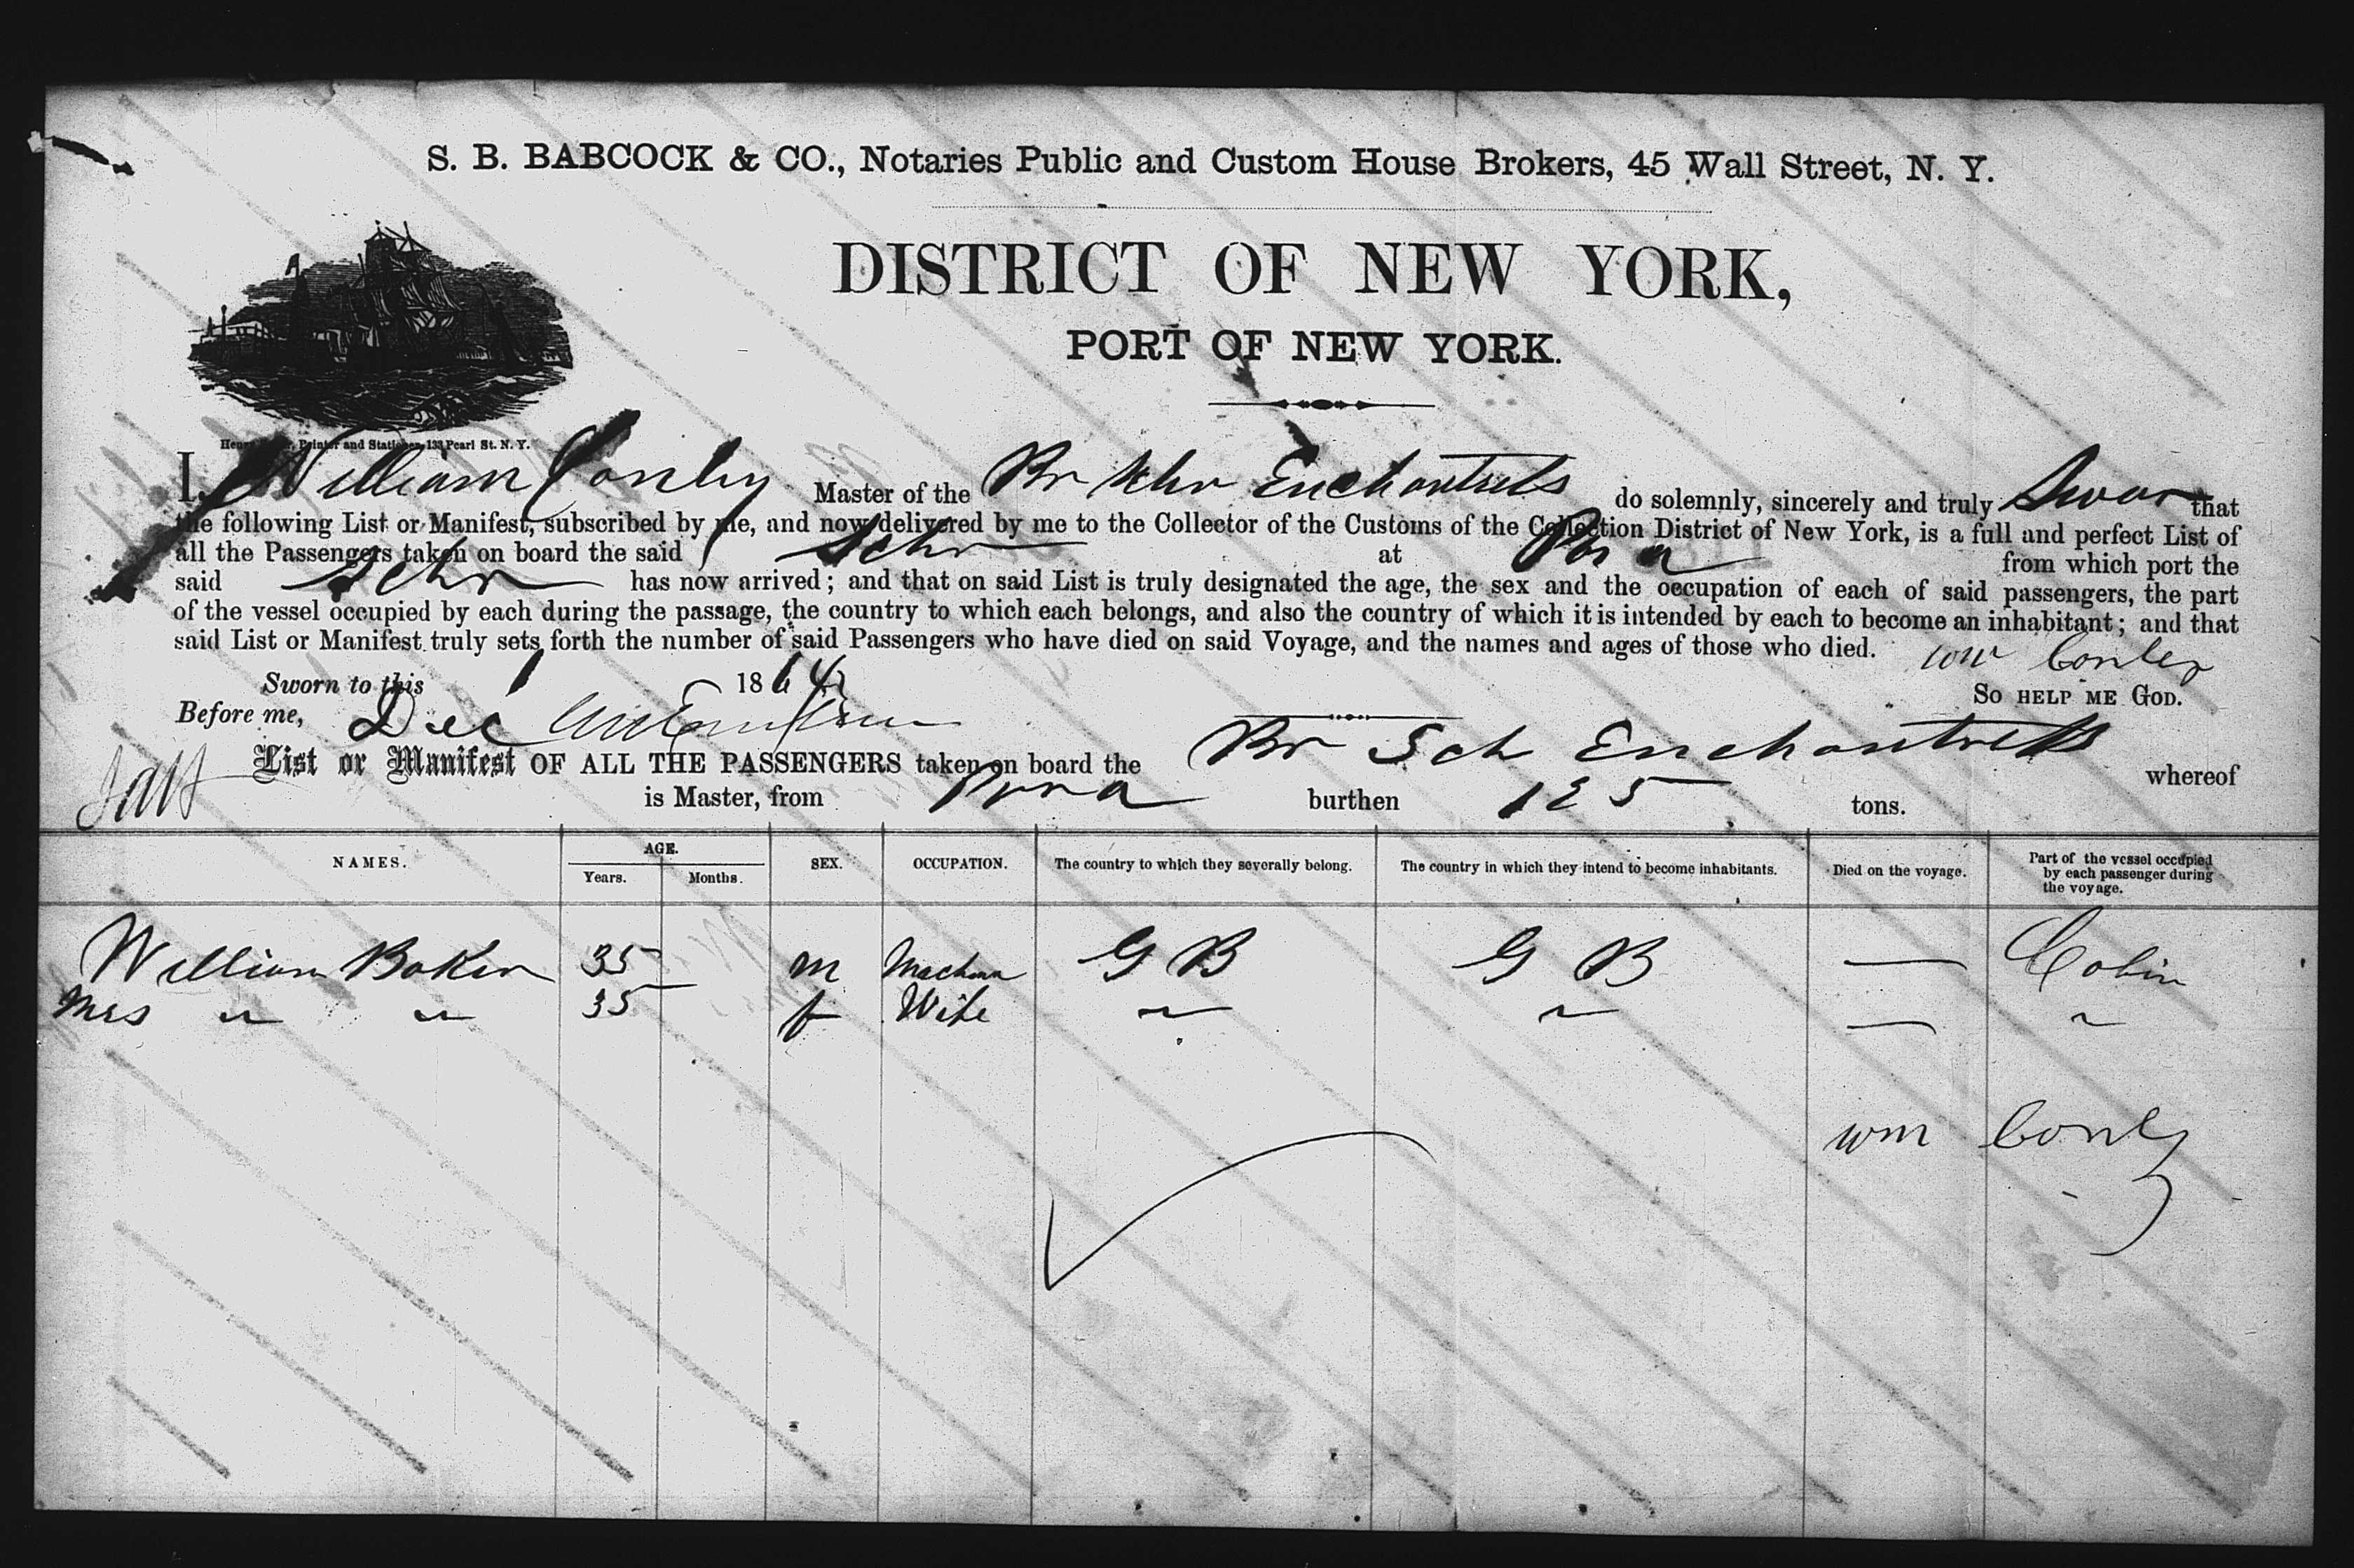 S. B. BABCOCK & CO., Notaries Public and Custom House Brokers, 45 Wall Street, N. Y.
DISTRICT OF NEW YORK,
PORT OF NEW YORK.
Printer and Stationer, 133 Pearl St. N. Y.
I, William Conley Master of the Br Schr Enchantress do solemnly, sincerely and truly Swear that
the following List or Manifest, subscribed by me, and now delivered by me to the Collector of the Customs of the Collection District of New York, is a full and perfect List of
all the Passengers taken on board the said Schr at from which port the
said Schr has now arrived; and that on said List is truly designated the age, the sex and the occupation of each of said passengers, the part
of the vessel occupied by each during the passage, the country to which each belongs, and also the country of which it is intended by each to become an inhabitant; and that
said List or Manifest truly sets forth the number of said Passengers who have died on said Voyage, and the names and ages of those who died. Wm Conley
Sworn to this 1 1864 SO HELP ME GOD.
Before me, Dec
List or Manifest OF ALL THE PASSENGERS taken on board the Br Sch Enchantress whereof
is Master, from burthen 125 tons.
NAMES. AGE. SEX. OCCUPATION. The country to which they severally belong. The country in which they intend to become inhabitants. Died on the voyage. Part of the vessel occupied by each passenger during the voyage.
Years. Months.
William Baker 35 m G B G B — Cabin
Mrs " " 35 f Wife " " — "
Wm Conley